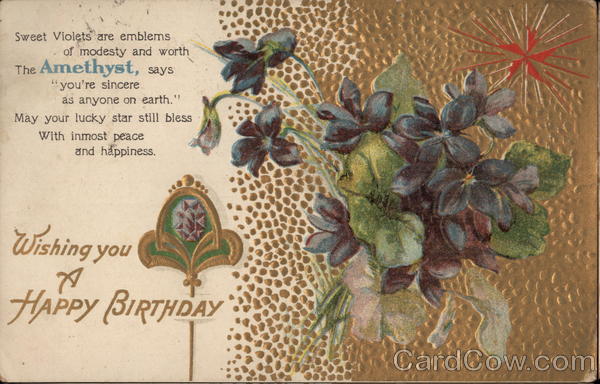 Sweet Violets are emblems
of modesty and worth
The Amethyst, says
"you're sincere
as anyone on earth."
May your lucky star still bless
With inmost peace
and happiness.
Wishing you
A
Happy Birthday
CardCow.com